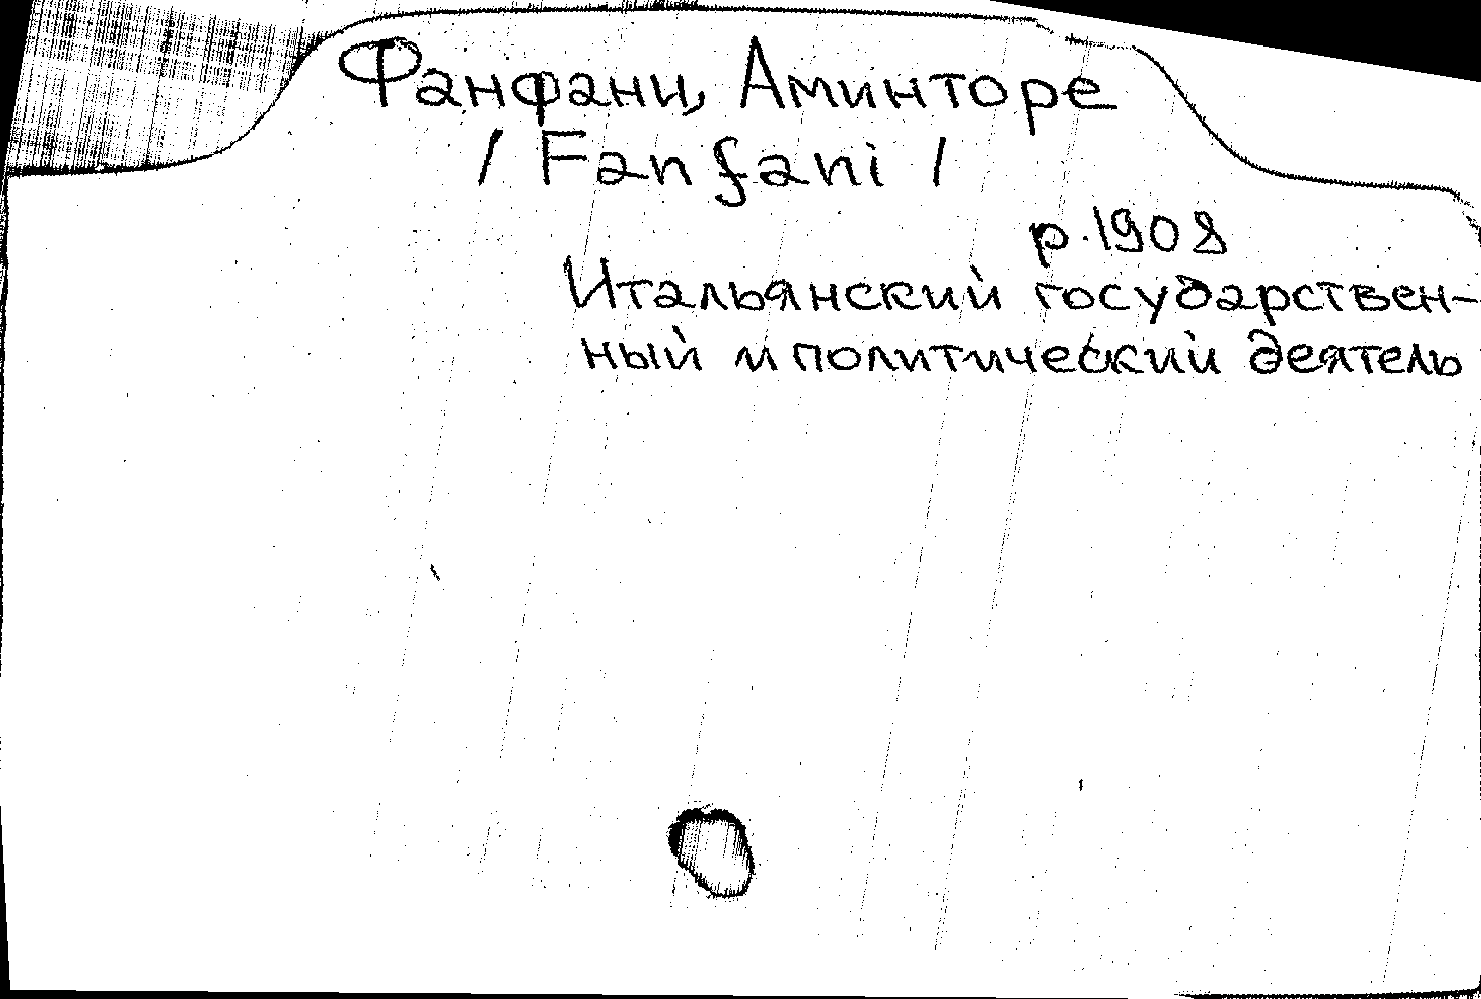 Фанфани, Аминторе
/ Fanfani /
р. 1908
Итальянский государствен-
ный и политический деятель